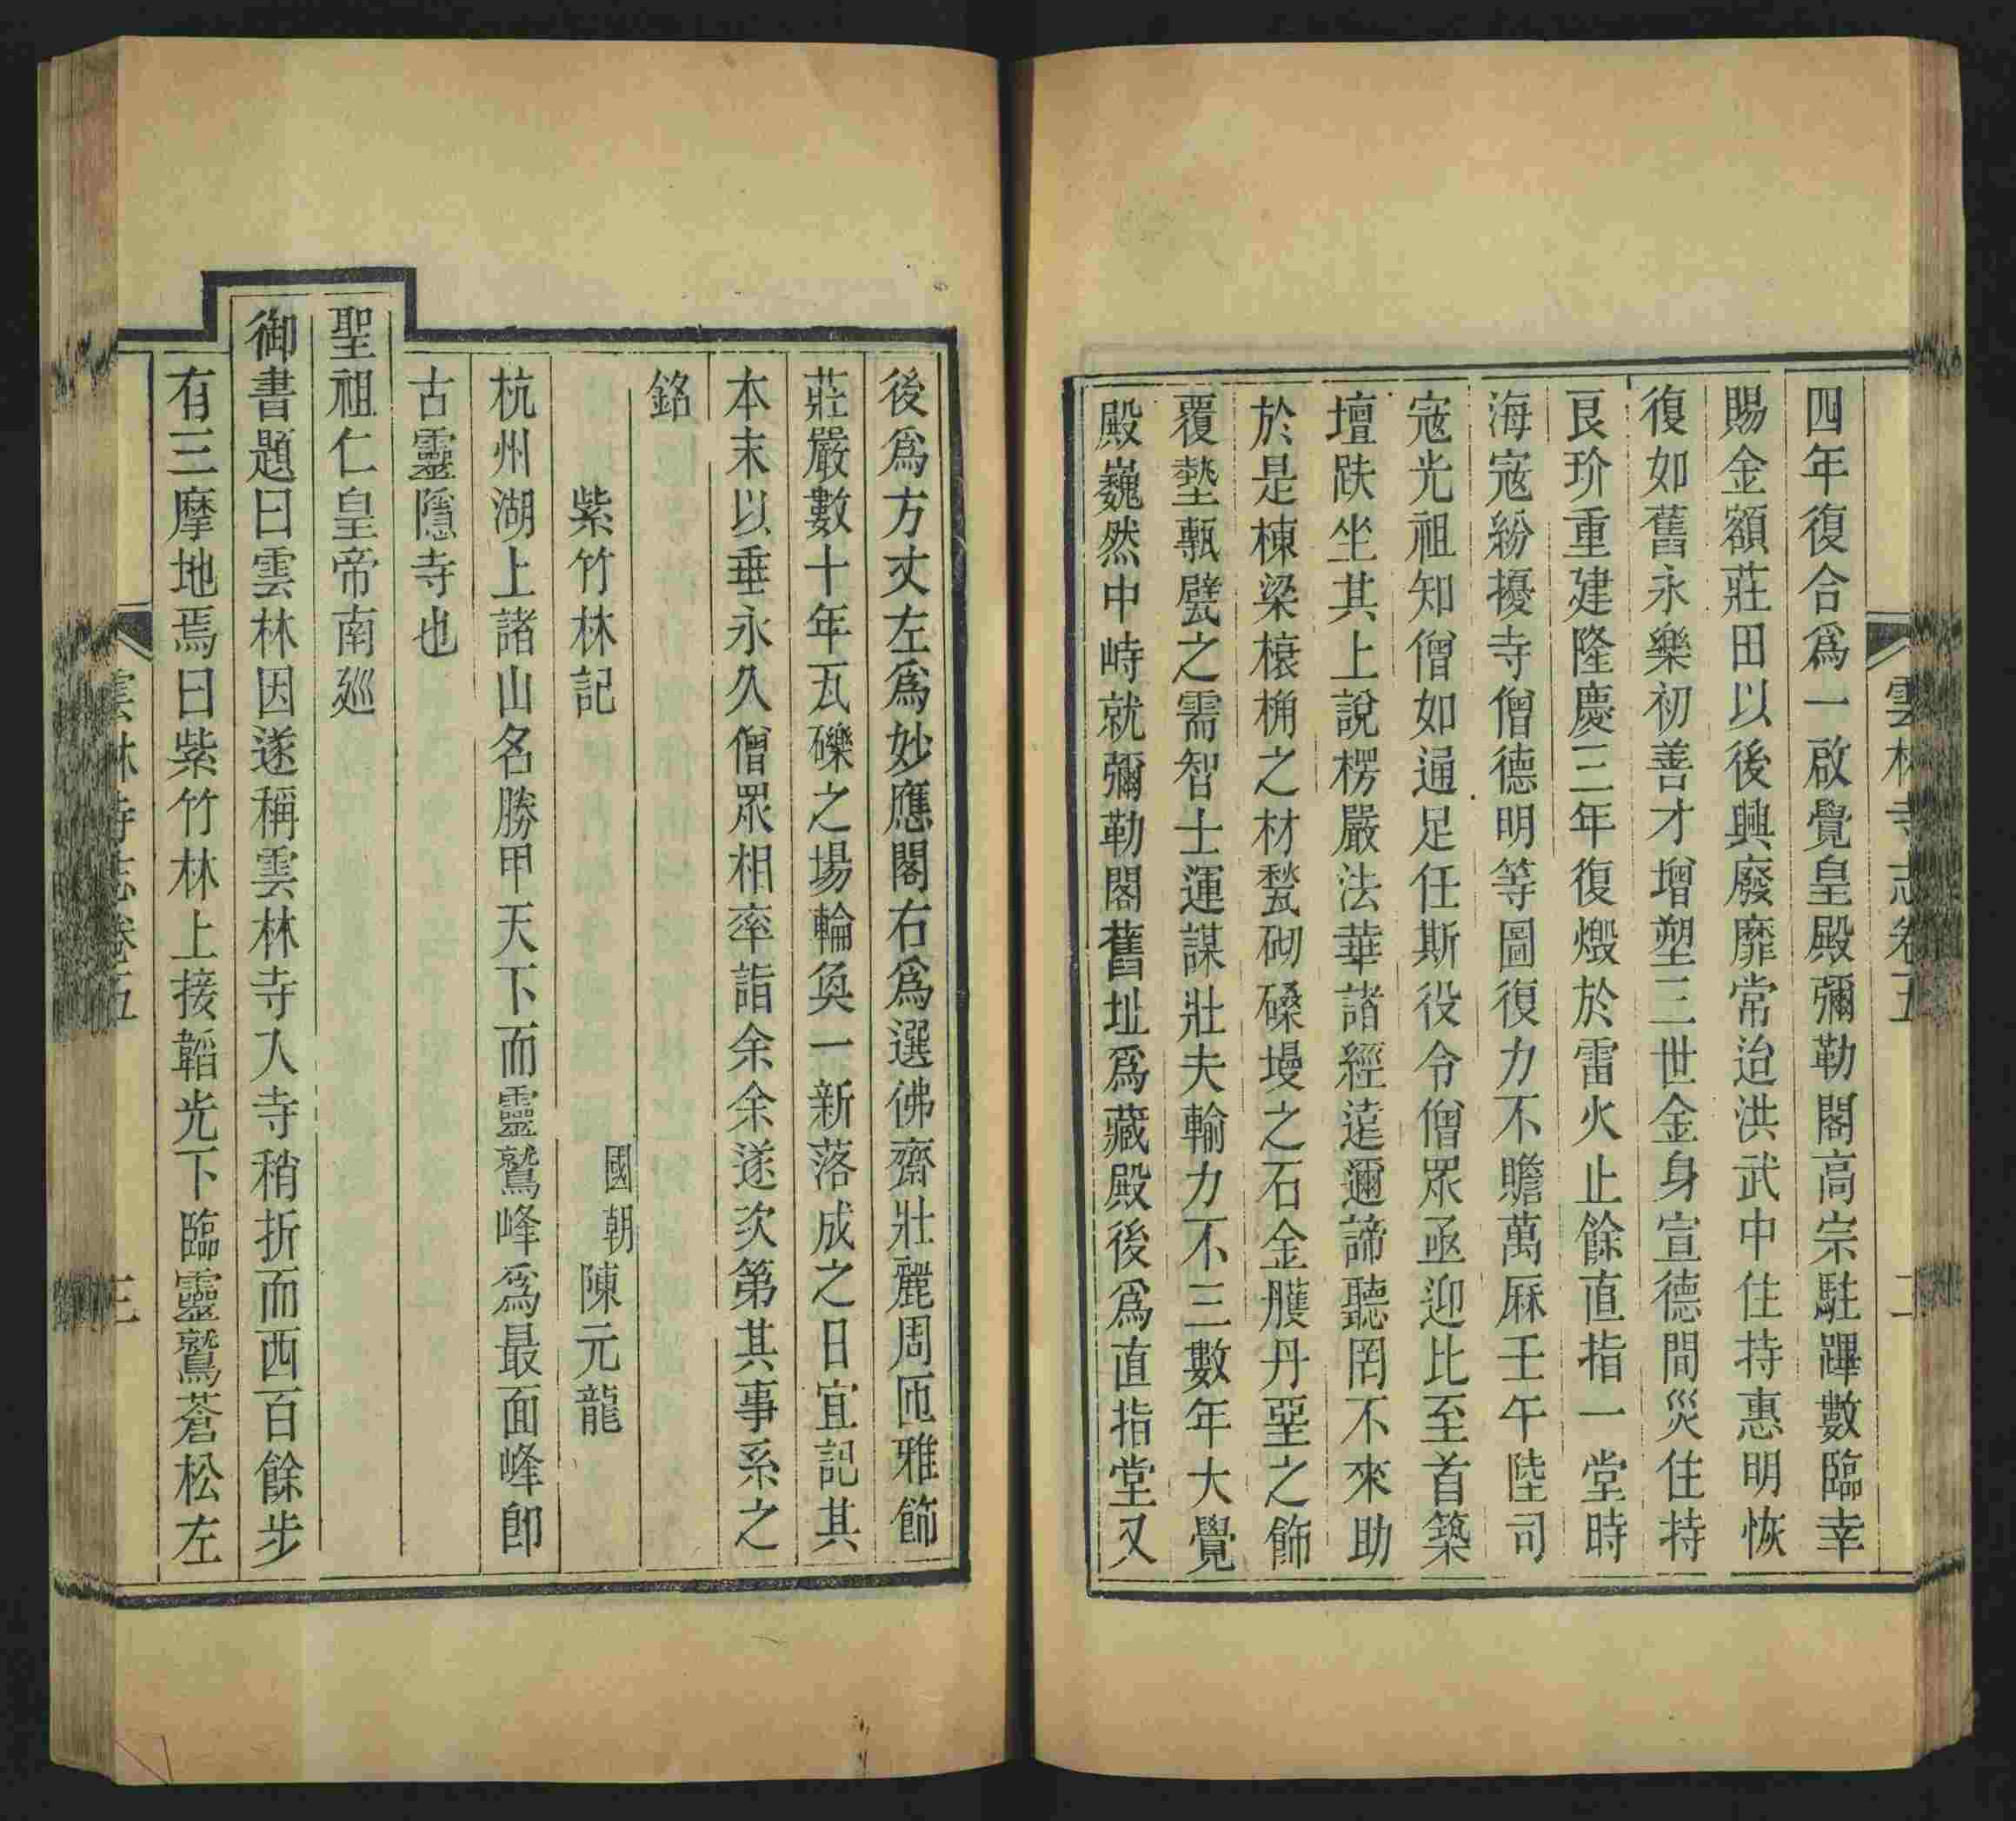 雲林寺志卷五
二
四年復合爲一啟覺皇殿彌勒閣高宗駐蹕數臨幸
賜金額莊田以後興廢靡常迨洪武中住持惠明恢
復如舊永樂初善才增塑三世金身宣德間災住持
良玠重建隆慶三年復燬於雷火止餘直指一堂時
海寇紛擾寺僧德明等圖復力不贍萬厤壬午陸司
寇光祖知僧如通足任斯役令僧眾亟迎比至首築
壇趺坐其上說楞嚴法華諸經遠邇諦聽罔不來助
於是棟梁榱桷之材甃砌磉墁之石金雘丹堊之飾
覆墊甎甓之需智士運謀壯夫輸力不三數年大覺
殿巍然中峙就彌勒閣舊址爲藏殿後爲直指堂又
後爲方丈左爲妙應閣右爲選佛齋壯麗周匝雅飾
莊嚴數十年瓦礫之場輪奐一新落成之日宜記其
本末以垂永久僧眾相率詣余余遂次第其事系之
銘
紫竹林記
國朝陳元龍
杭州湖上諸山名勝甲天下而靈鷲峰爲最面峰卽
古靈隱寺也
聖祖仁皇帝南巡
御書題曰雲林因遂稱雲林寺入寺稍折而西百餘步
有三摩地焉曰紫竹林上接韜光下臨靈鷲蒼松左
雲林寺志卷五
三